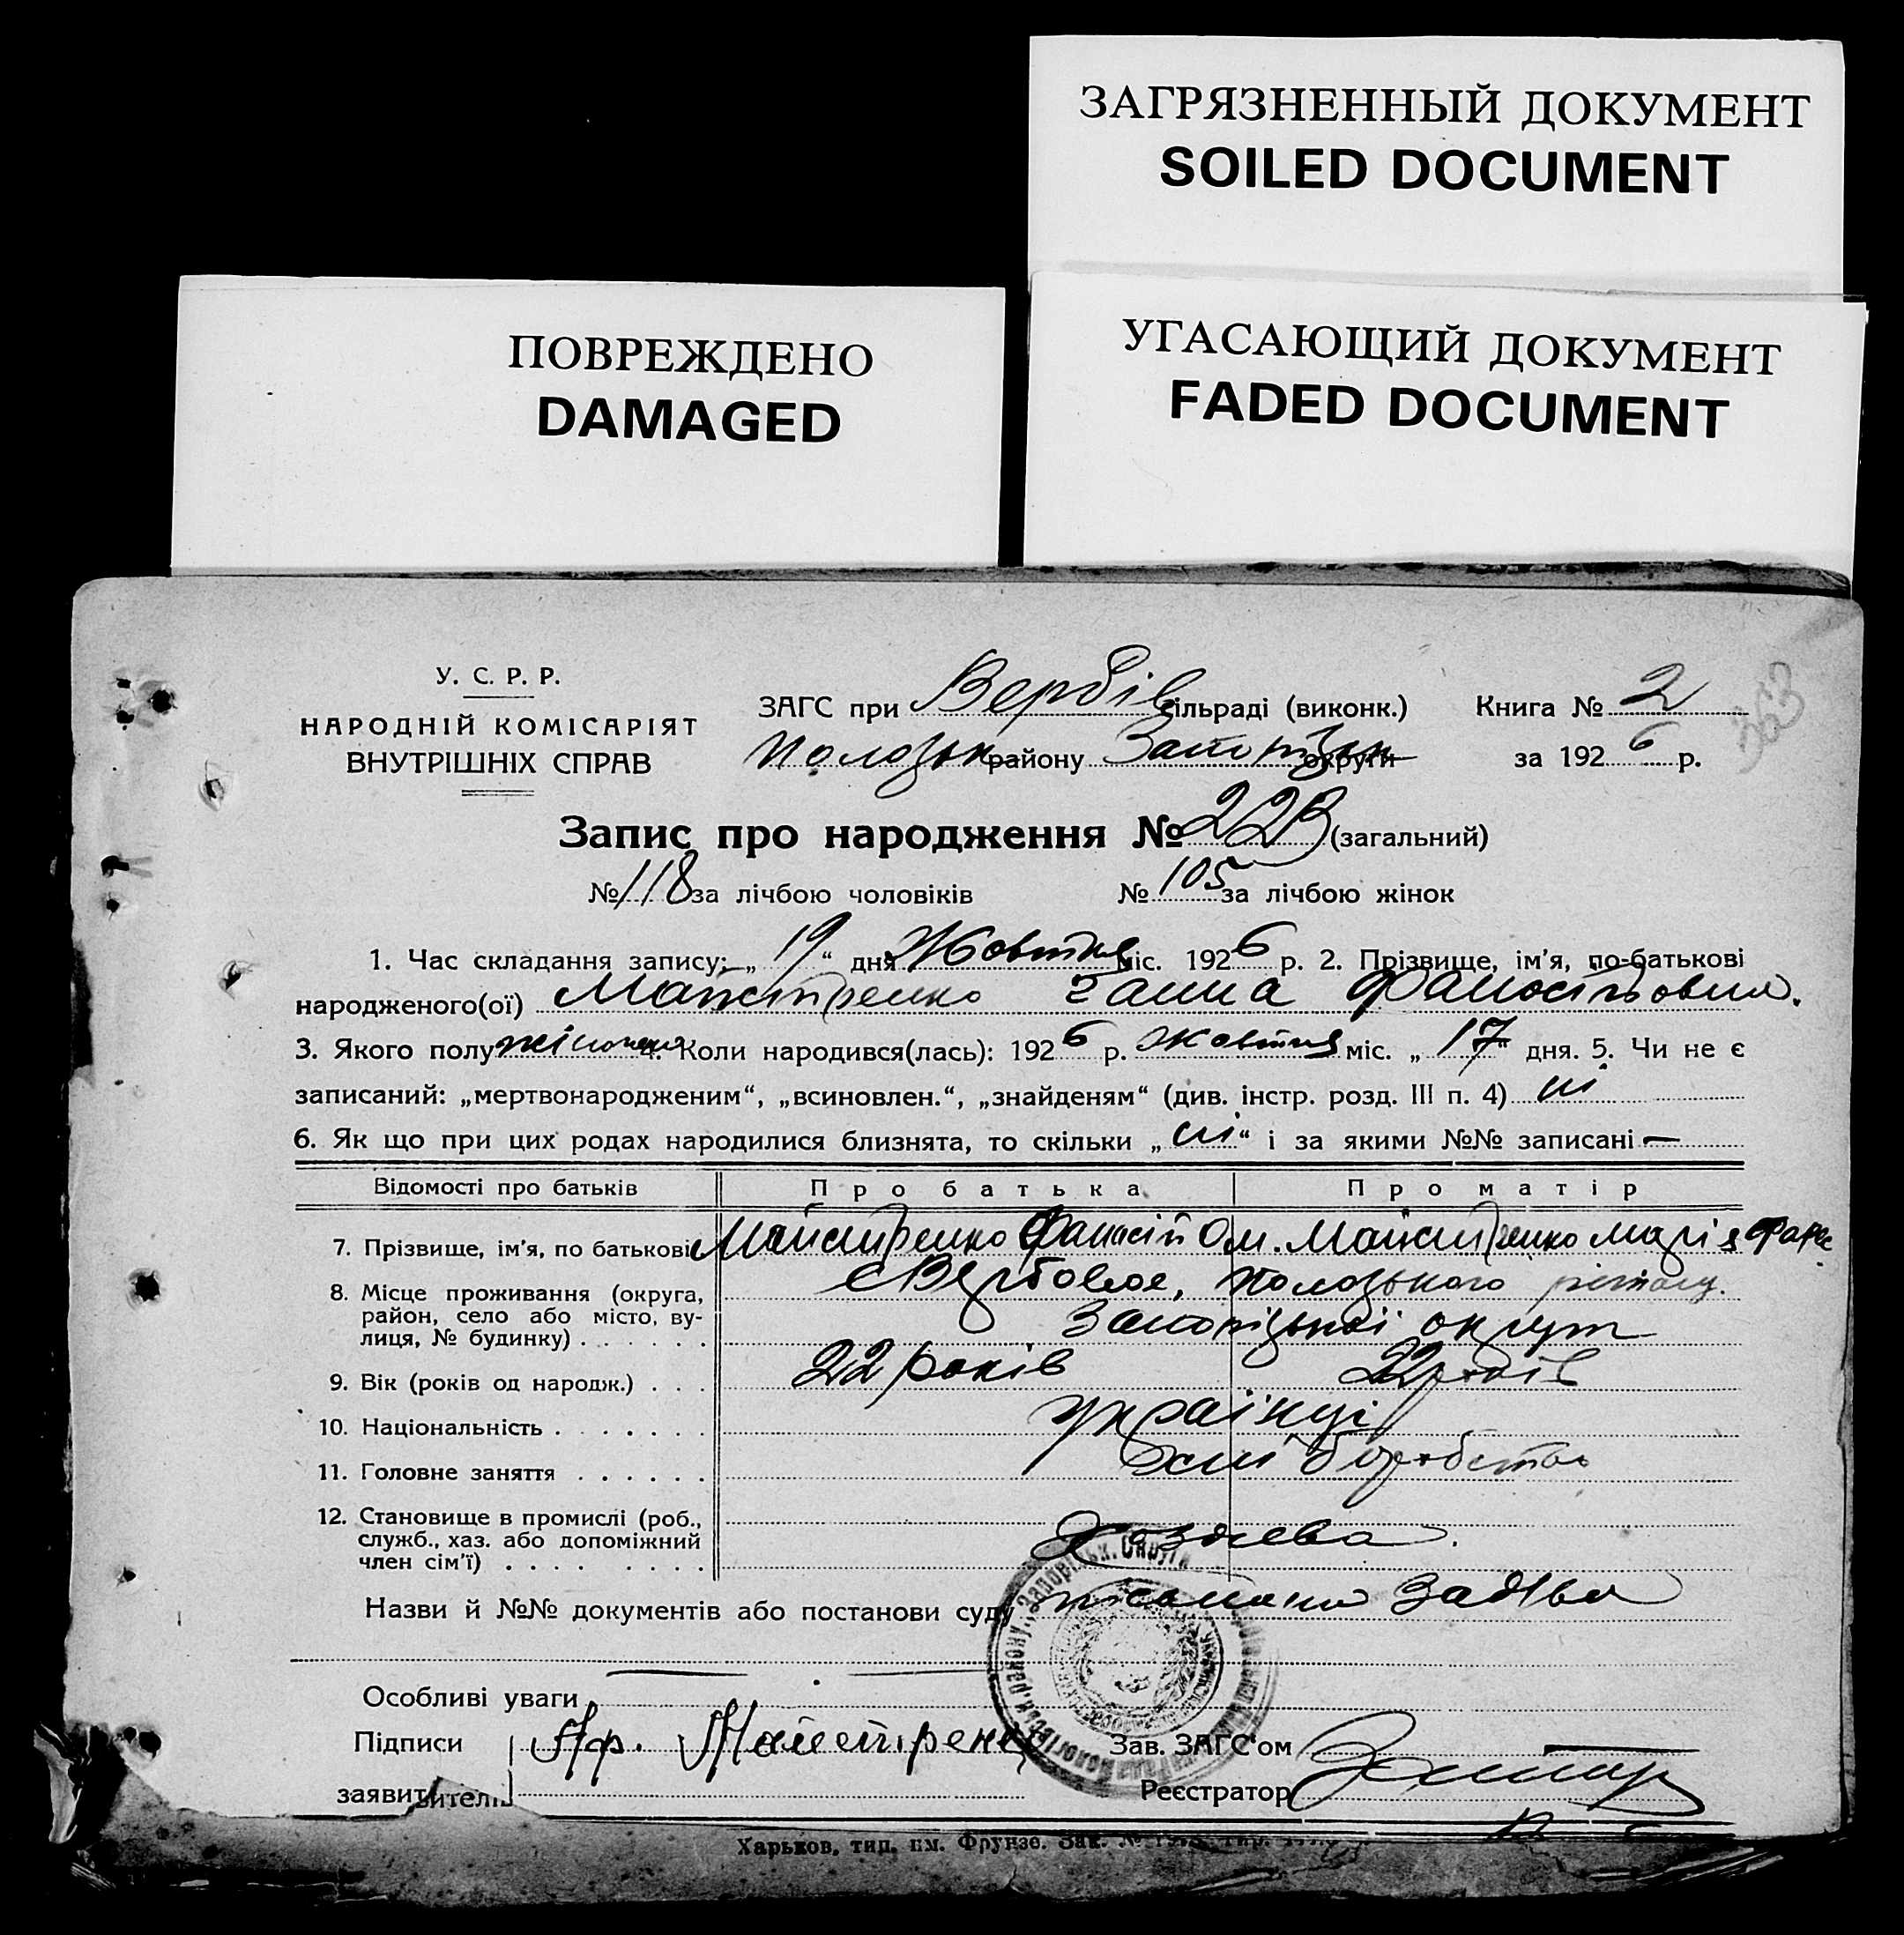 ЗАГРЯЗНЕННЫЙ ДОКУМЕНТ
SOILED DOCUMENT
ПОВРЕЖДЕНО
DAMAGED
УГАСАЮЩИЙ ДОКУМЕНТ
FADED DOCUMENT
363
У. С. Р. Р.
НАРОДНІЙ КОМІСАРІЯТ
ВНУТРІШНІХ СПРАВ
ЗАГС при Вербів сільраді (виконк.) Книга № 2
Пологськ району округи за 1926 р.
Запис про народження № 223 (загальний)
№ 118 за лічбою чоловіків № 105 за лічбою жінок
1. Час складання запису: „19“ дня Жовтня міс. 1926 р. 2. Прізвище, ім'я, по-батькові
народженого(ої) Майстренко Ганна
3. Якого полу жіночия 4. Коли народився(лась): 1926 р. жовтня міс. „17“ дня. 5. Чи не є
записаний: „мертвонародженим“, „всиновлен.“, „знайденям“ (див. інстр. розд. III п. 4) ні
6. Як що при цих родах народилися близнята, то скільки „ні“ і за якими №№ записані —
Відомості про батьків Про батька Про матір
7. Прізвище, ім'я, по батькові Майстренко Фанасій Ом. Майстренко Марія
8. Місце проживання (округа, район, село або місто, вулиця, № будинку) с Вербовое, Пологського
округи
9. Вік (років од народж.) 22 років 22 років
10. Національність українці
11. Головне заняття
12. Становище в промислі (роб., служб., хаз. або допоміжний член сім'ї) Хозяева.
Назви й №№ документів або постанови суду
Особливі уваги
Підписи Аф. Майстренко Зав. ЗАГС'ом
заявителів Реєстратор
Харьков, тип. им. Фрунзе. Зак. №